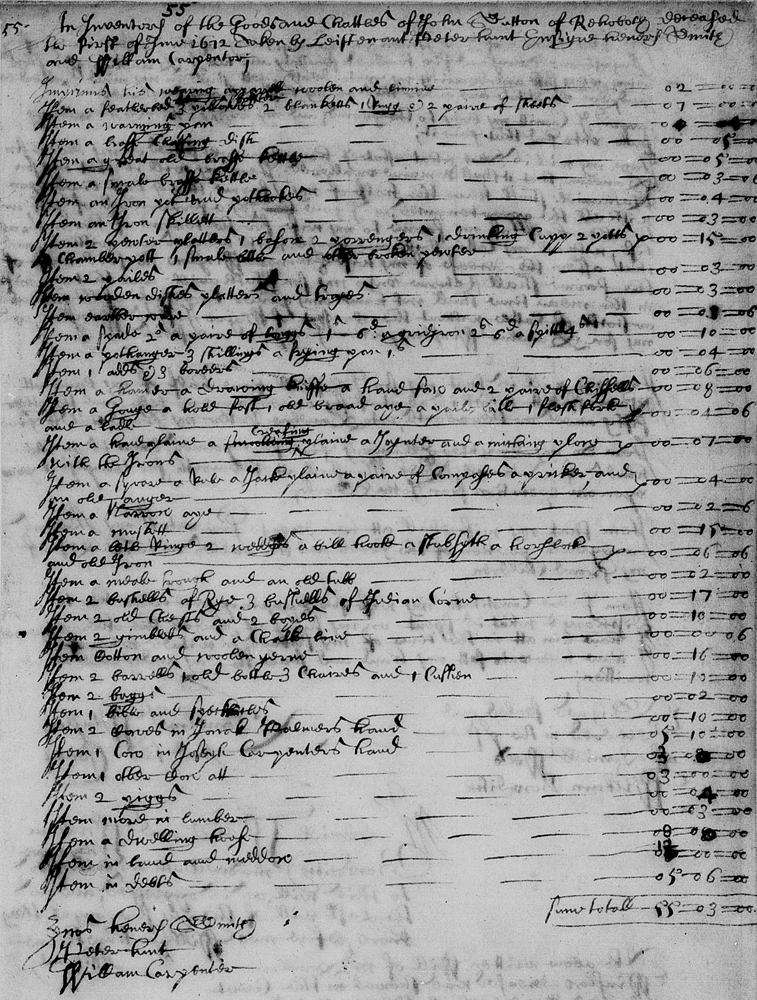 55
55
An Inventory of the Goods and Chattles of John Sutton of Rehoboth deceased
the first of June 1672 taken by Leiftenant Peter hunt Ensigne henery Smith
and William Carpenter;
Imprimis his wearing apparell woolen and linnine 02 = 00 = 00
Item a featherbed 2 blanketts 1 Rugg & 2 paire of sheets 07 = 00
Item a warming pan
Item a chaffing dish 00 = 05 = 0
Item a great old brasse kettle 00 = 05 = 0
Item a smale brasse kettle 00 = 03 = 0
Item an Iron pot and pothookes 00 = 04 = 00
Item an Iron skillett 00 = 03 = 00
Item 2 pewter platters 1 bason 2 porrengers 1 drinking Cupp 2 potts 00 = 15 = 00
a Chamberpott 1 smale and other broken pewter
Item 2 pailes 00 = 03 = 00
Item wooden dishes platters and trayes 00 = 03 = 00
Item earthen ware 00 = 06
Item a spade 2s a paire of tonggs 1s 6d a gridiron 2s 6d a spitt 4s 00 = 10 = 00
Item a pothanger 3 shillings a frying pan 1s 00 = 04 = 00
Item 1 adds & 3 borders 00 = 06 = 00
Item a hamer a drawing kniffe a hand saw and 2 paire of Chissells 00 = 08 = 00
Item a Gouge a hold fast 1 old broad axe a 1 flesh forke 00 = 04 = 06
and a ladle
Item a hand plaine a creasing plaine a Joynter and a plow 00 = 07 = 00
with the Irons
Item a square a Rule a Jack plaine a paire of Compases a pricker and 00 = 04 = 00
an old auger
Item a Narrow axe 00 = 02 = 6
Item a muskett 00 = 15 = 00
Item a Ringe 2 wedges a bill hook a a horslock 00 = 06 = 06
and old Iron
Item a meale trough and an old tubb 00 = 02 = 00
Item 2 bushells of Rye 3 bushells of Indian Corne 00 = 17 = 00
Item 2 old Chests and 2 boxes 00 = 10 = 00
Item 2 gimbletts and a Chalke line 00 = 00 = 06
Item Cotton and woolen yerne 00 = 16 = 00
Item 2 barrells 1 old bottle 3 Chaires and 1 Cushen 00 = 10 = 00
Item 2 baggs 00 = 02 = 00
Item 1 bible and spectticles 00 = 10 = 00
Item 2 in Jonah Palmers hand 05 = 10 = 00
Item 1 Cow in Joseph Carpenters hand 00
Item 1 other Cow att 03 = 00 = 00
Item 2 piggs 00 = 00
Item more in lumber 00 = 03 = 00
Item a dwelling house 08 = 00
Item in land and meddow 00 = 00
Item in debts 05 = 06 = 00
sume totall 55 = 03 = 00
henery Smith
Peter hunt
William Carpenter